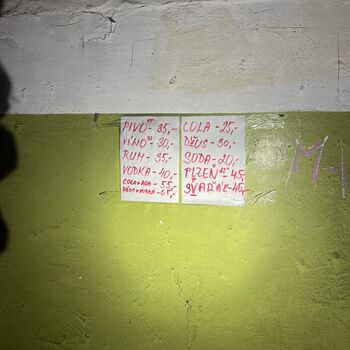 PIVO - 35,-
VÍNO - 30,-
RUM - 35,-
VODKA - 40,-
COLA+RUM - 55,-
DŽUS+VODKA - 65,-
COLA - 25,-
DŽUS - 30,-
SODA - 20,-
PLZEŇ - 45,-
SVAŘÁK - 40,-
M-